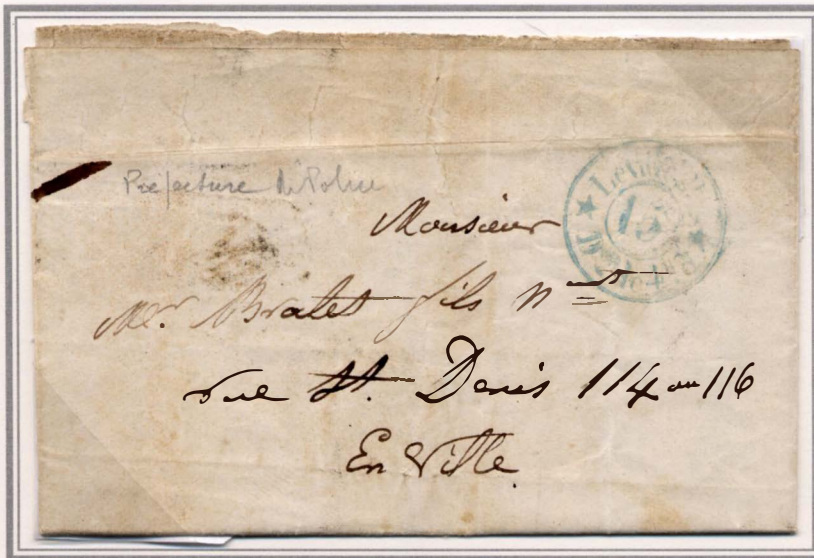 Préfecture de Police
Monsieur
Mr. Bralet fils nt
rue St. Denis 114 ou 116
En Ville
15